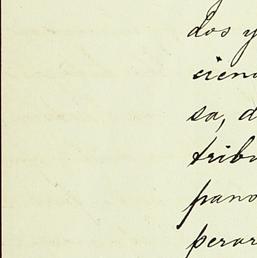 dos y
cien
sa, d
tribu
pano
perar